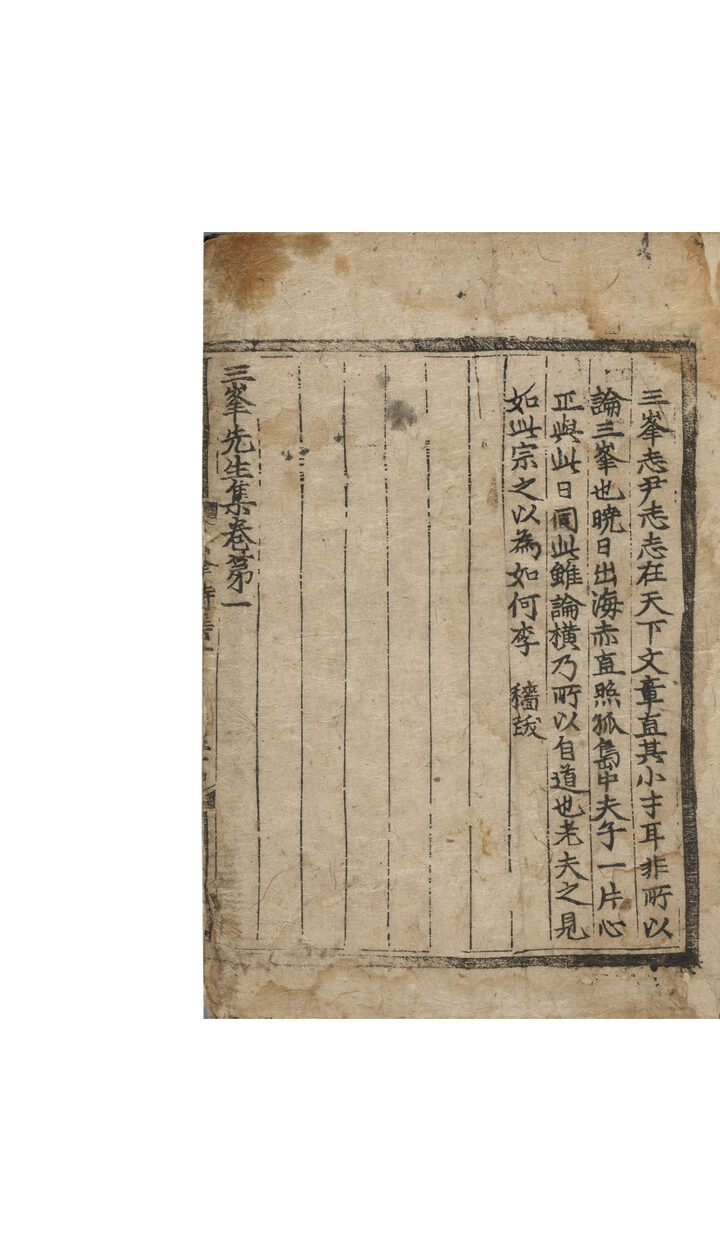 三峯志尹志志在天下文章直其小才耳非所以
論三峯也曉日出海赤直照孤島中夫子一片心
正與此日同此雖論橫乃所以自道也老夫之見
如此宗之以為如何李　穡跋
三峯先生集卷第一